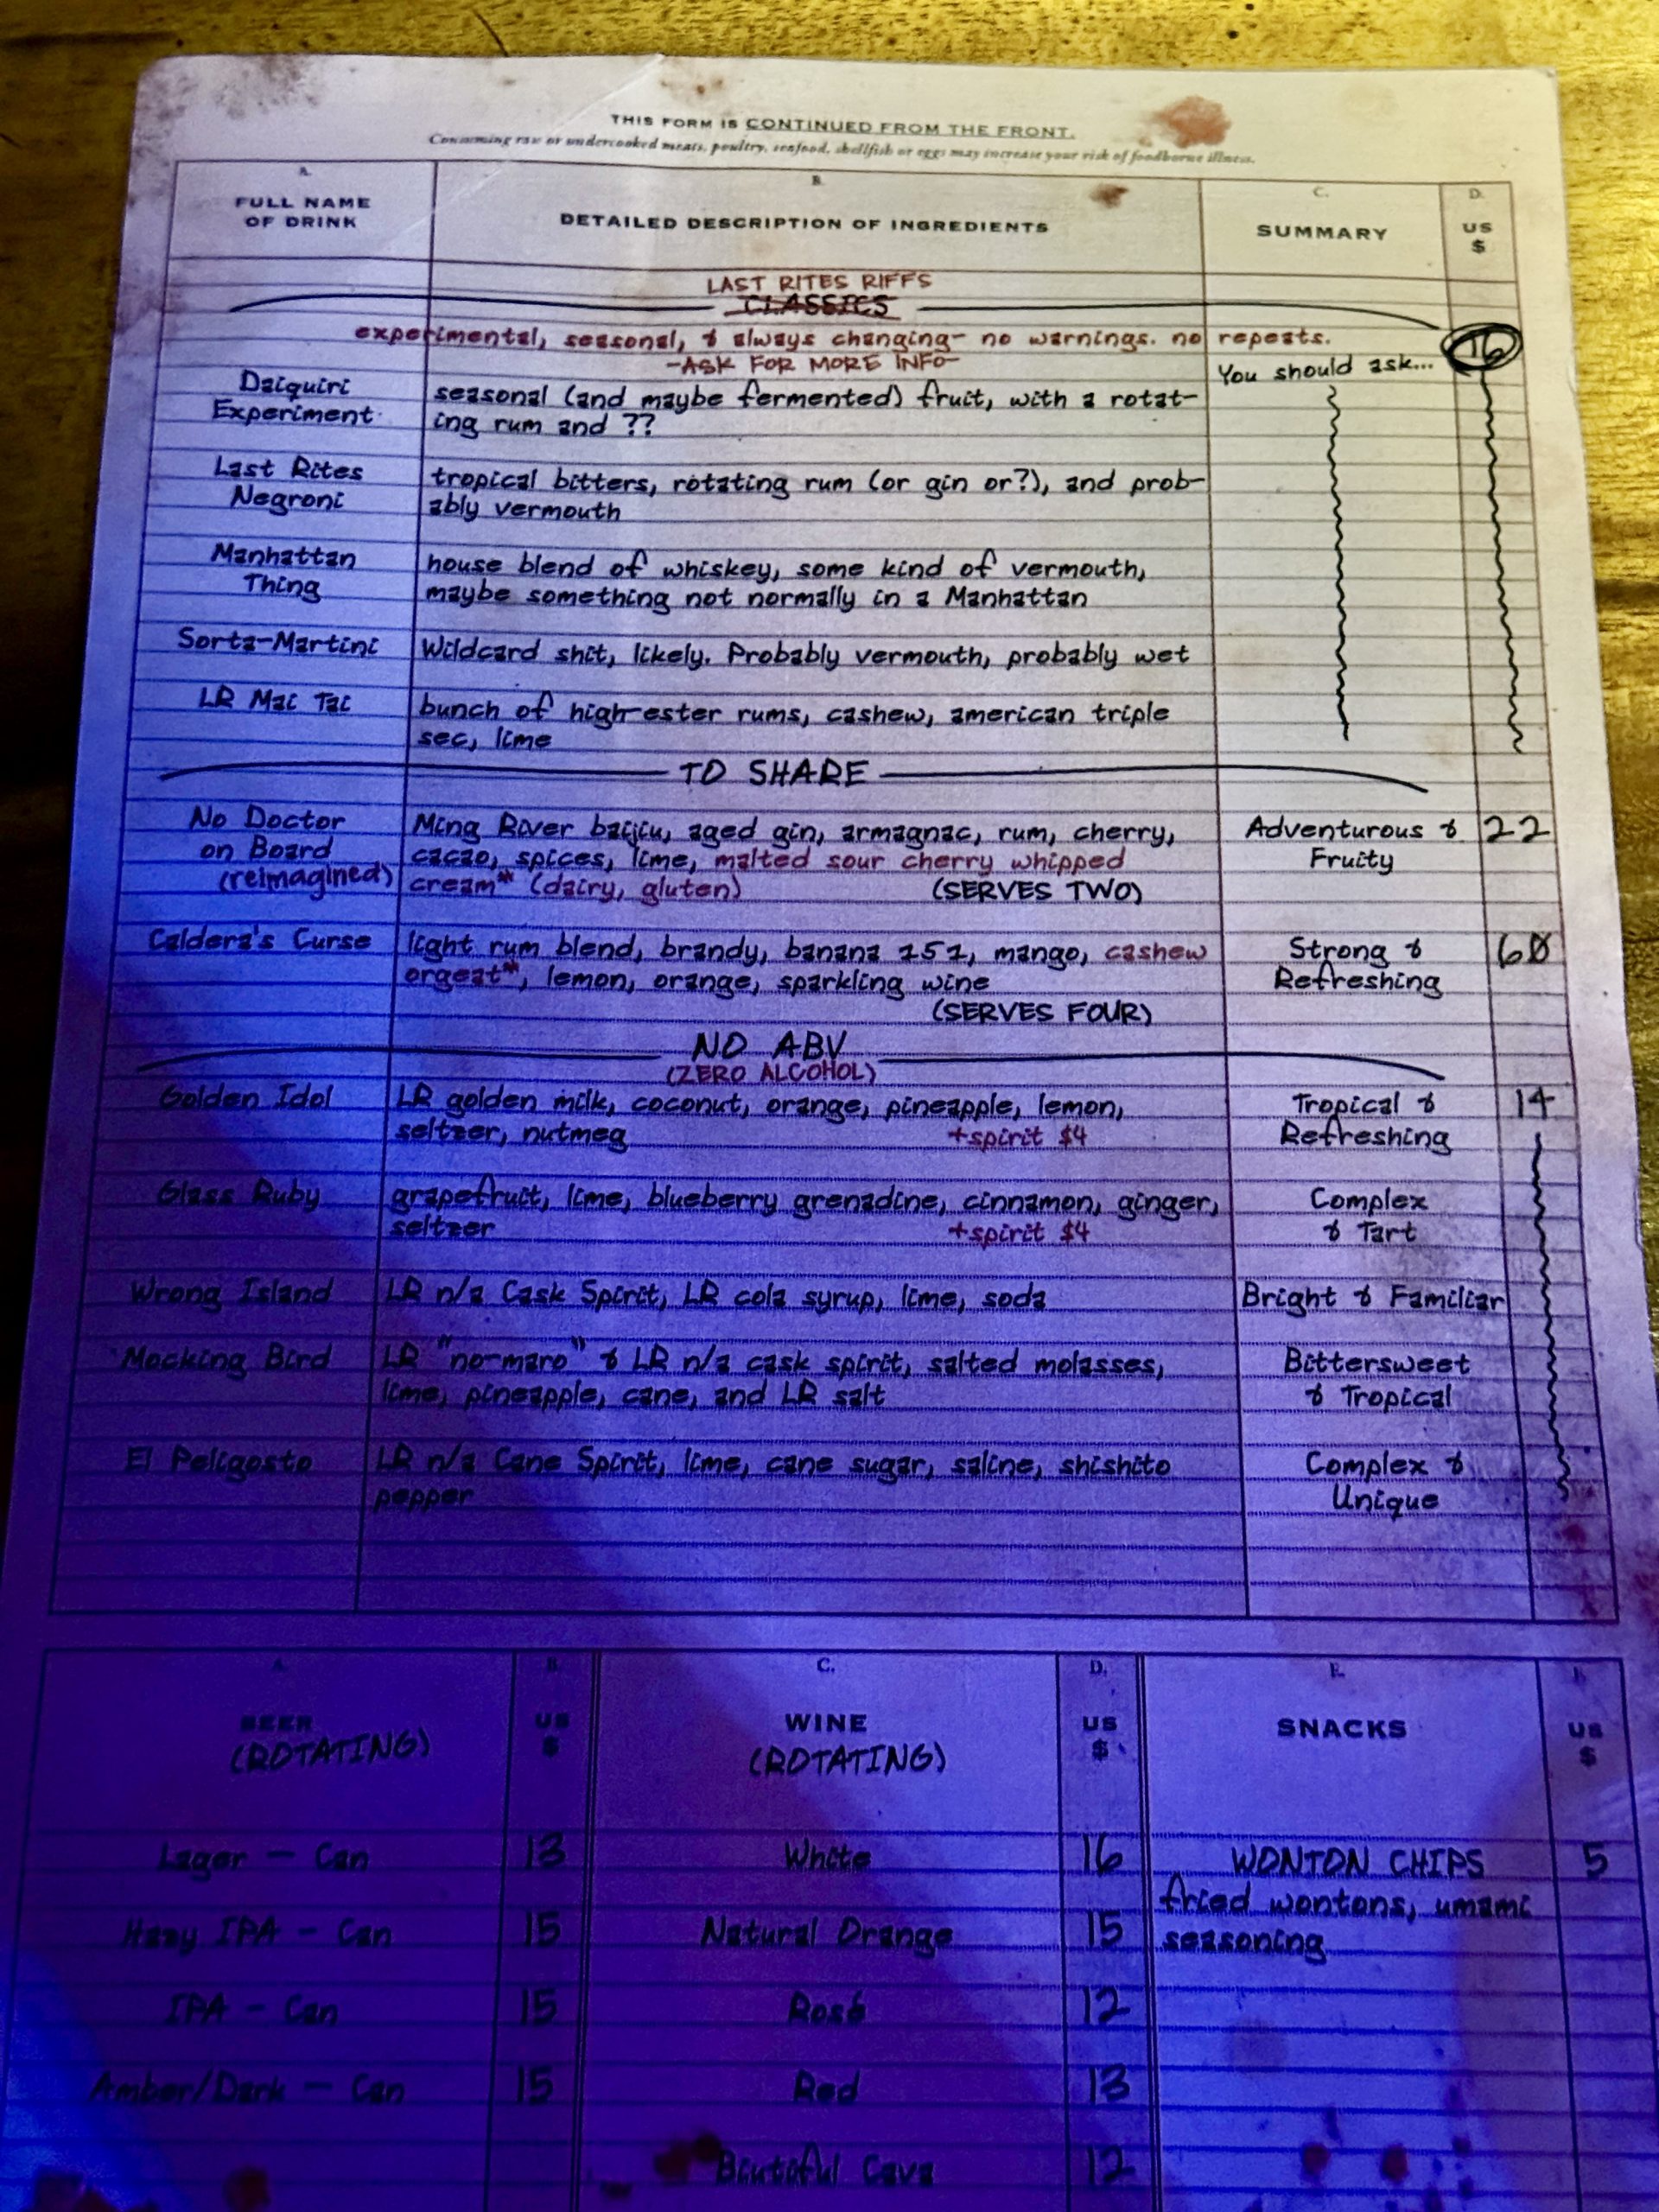 THIS FORM IS CONTINUED FROM THE FRONT.
Consuming raw or undercooked meats, poultry, seafood, shellfish or eggs may increase your risk of foodborne illness.
A. B. C. D.
FULL NAME
OF DRINK
DETAILED DESCRIPTION OF INGREDIENTS
SUMMARY
US
$
LAST RITES RIFFS
CLASSICS
experimental, seasonal, & always changing- no warnings. no repeats.
-ASK FOR MORE INFO-
You should ask...
16
Daiquiri
Experiment
seasonal (and maybe fermented) fruit, with a rotat-
ing rum and ??
Last Rites
Negroni
tropical bitters, rotating rum (or gin or?), and prob-
ably vermouth
Manhattan
Thing
house blend of whiskey, some kind of vermouth,
maybe something not normally in a Manhattan
Sorta-Martini
Wildcard shit, likely. Probably vermouth, probably wet
LR Mai Tai
bunch of high-ester rums, cashew, american triple
sec, lime
TO SHARE
No Doctor
on Board
(reimagined)
Ming River baijiu, aged gin, armagnac, rum, cherry,
cacao, spices, lime, malted sour cherry whipped
cream* (dairy, gluten) (SERVES TWO)
Adventurous &
Fruity
22
Caldera's Curse
light rum blend, brandy, banana 151, mango, cashew
orgeat*, lemon, orange, sparkling wine
(SERVES FOUR)
Strong &
Refreshing
60
NO ABV
(ZERO ALCOHOL)
Golden Idol
LR golden milk, coconut, orange, pineapple, lemon,
seltzer, nutmeg +spirit $4
Tropical &
Refreshing
14
Glass Ruby
grapefruit, lime, blueberry grenadine, cinnamon, ginger,
seltzer +spirit $4
Complex
& Tart
Wrong Island
LR n/a Cask Spirit, LR cola syrup, lime, soda
Bright & Familiar
Mocking Bird
LR "no-maro" & LR n/a cask spirit, salted molasses,
lime, pineapple, cane, and LR salt
Bittersweet
& Tropical
El Peligosto
LR n/a Cane Spirit, lime, cane sugar, saline, shishito
pepper
Complex &
Unique
A. B. C. D. E. F.
BEER
(ROTATING)
US
$
WINE
(ROTATING)
US
$
SNACKS
US
$
Lager - Can 13
Hazy IPA - Can 15
IPA - Can 15
Amber/Dark - Can 15
White 16
Natural Orange 15
Rosé 12
Red 13
Biutiful Cava 12
WONTON CHIPS 5
fried wontons, umami
seasoning